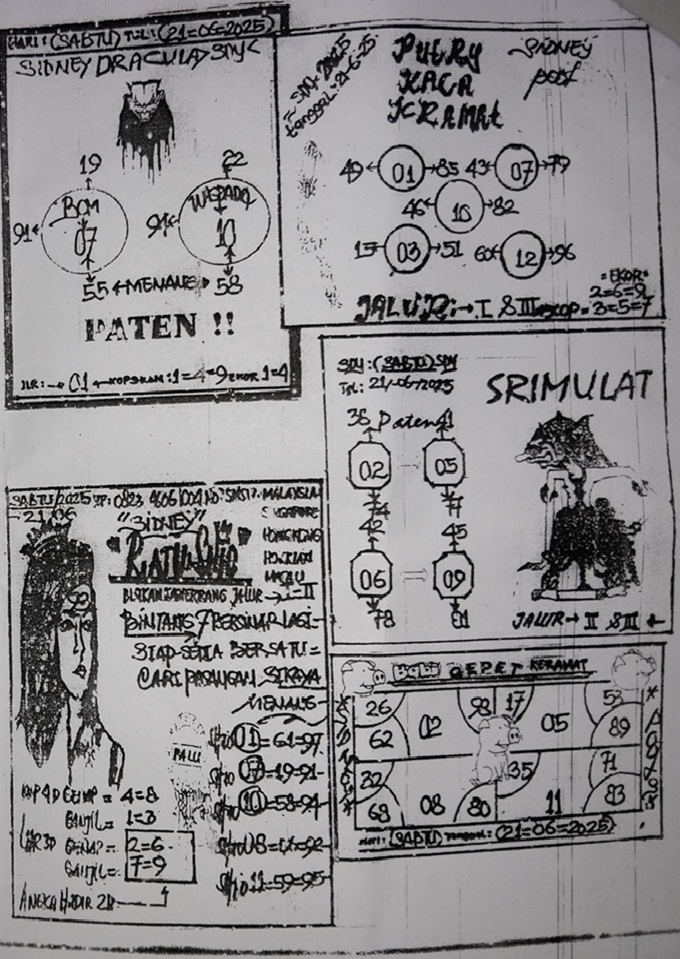 HARI: (SABTU) TGL: (21=06=2025)
SIDNEY DRACULA SDY
19
22
BOM
WASPADA
91
07
91
10
55 MENANG 58
PATEN !!
JLR: → 01 KOP 1=4=9 EKOR 1=4
SDY 2025
tanggal: 21-6-25
PUTRY
KACA
KRAMAT
SIDNEY
pool
49 01 85 43 07 79
46 10 82
15 03 51 60 12 96
=EKOR=
2=6=9
JALUR: → I & III KOP = 3=5=7
SDY: (SABTU) SDY
TGL: 21/06/2025
SRIMULAT
38 Paten 41
02
05
74
77
42
45
06
09
78
81
JALUR → II & III
SABTU/2025 HP: 0823 4606
21 06
MALAYSIA
"SIDNEY"
HONGKONG
RATU
MACAU
JALUR → I-II
BINTANG 7 BERSINAR LAGI
SIAP SETIA BERSATU =
CARI PASANGAN
MENANG
Shio 01 = 61=97
PALU
Shio 07 = 19=91
Shio 10 = 58=94
KOP 4D GENAP = 4=8
GANJIL = 1=3
Shio 08
GENAP = 2=6
GANJIL = 7=9
Shio 11 = 59=95
ANGKA 2D
BABI GEPET KERAMAT
26
98
17
53
02
05
62
89
32
35
71
68
08
80
11
83
HARI: (SABTU) TANGGAL: (21=06=2025)